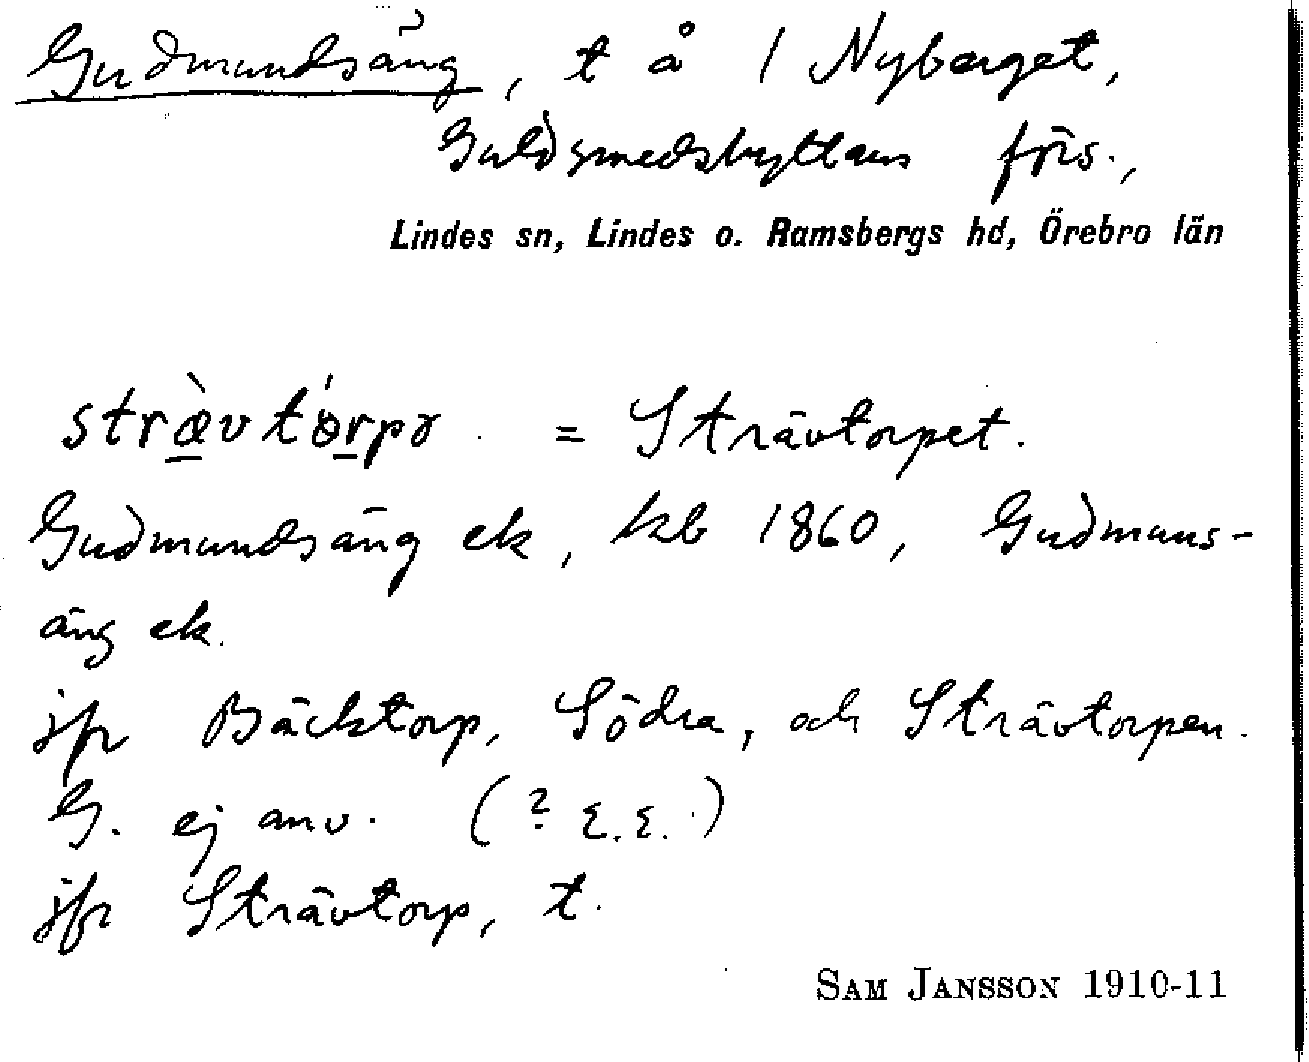 Gudmundsäng, t å 1 Nyberget,
Guldsmedshyttans förs.,
Lindes sn, Lindes o. Ramsbergs hd, Örebro län
stræ̀vtórpə = Strävtorpet.
Gudmundsäng ek, kb 1860, Gudmuns-
äng ek.
jfr Bäcktorp, Södra, och Strävtorpen.
G. ej anv. (? E.E.)
jfr Strävtorp, t.
SAM JANSSON 1910-11